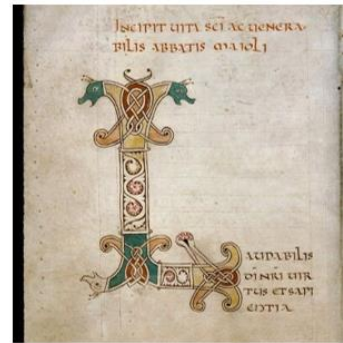 INCIPIT UITA SCI AC UENERA
BILIS ABBATIS MAIOLI
LAUDABILIS
DI NRI UIR
TUS ET SAPI
ENTIA